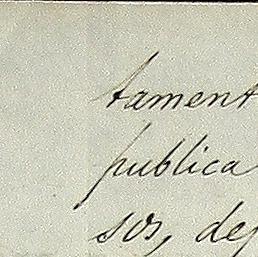 tament
publica
sos, dep